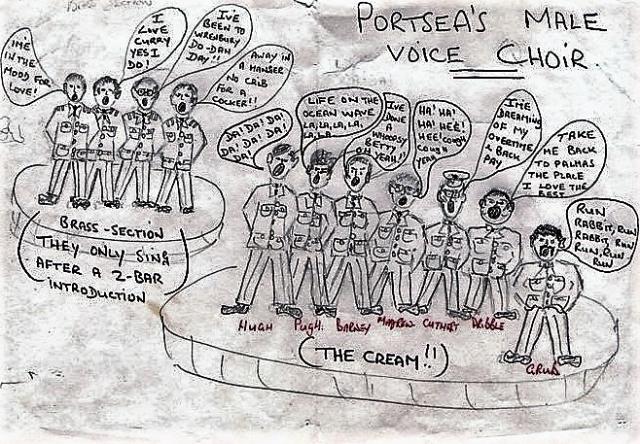 PORTSEA'S MALE
VOICE CHOIR.
IME
IN THE
MOOD FOR
LOVE!
I
LOVE
CURRY
YES I
DO!
I'VE
BEEN TO
WRENBURY
DO-DAH
DAY!!
AWAY IN
A MANGER
NO CRIB
FOR A
COCKER!!
BRASS-SECTION
(THEY ONLY SING
AFTER A 2-BAR
INTRODUCTION)
DA! DA! DA!
DA! DA! DA!
DA!
LIFE ON THE
OCEAN WAVE
LA, LA, LA, LA,
LA, LA
I'VE
DONE
A
WHOOPSY
BETTY
OH YEAH!!
HA! HA!
HA! HEE!
HEE! COUGH
COUGH
YEAH!
IME
DREAMING
OF MY
OVERTIME
& BACK
PAY
TAKE
ME BACK
TO PALMAS
THE PLACE
I LOVE THE
BEST
RUN
RABBIT, RUN
RABBIT, RUN
RUN, RUN
RUN
HUGH PUGH. BARNEY CUTHBERT DIBBLE
GRUB
(THE CREAM!!)